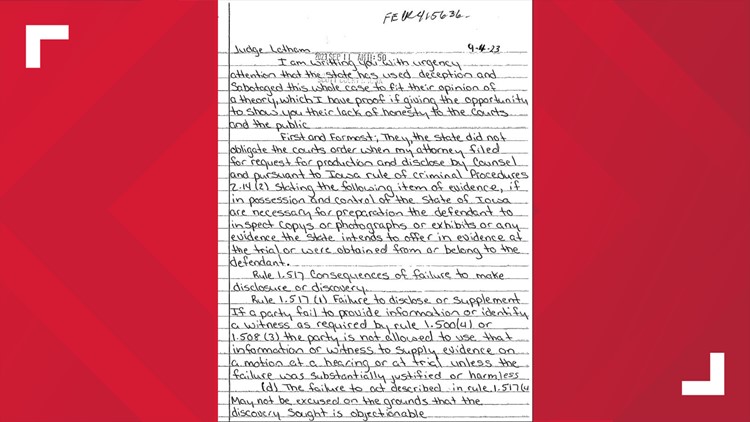 FECR415636.
Judge Latham 9-4-23
2023 SEP 11 AM 11:50
I am writting you with urgency
attention that the state has used deception and
Sabotaged this whole case to fit their opinion of
a theory, which I have proof if giving the opportunity
to show you their lack of honesty to the Courts
and the public
First and Formost; They, the state did not
obligate the courts order when my attorney filed
for request for production and disclose by Counsel
and pursuant to Iowa rule of criminal Procedures
2.14(2) stating the following item of evidence, if
in possession and control of the State of Iowa
are necessary for preparation the defendant to
inspect Copys or photographs or exhibits or any
evidence the state intends to offer in evidence at
the trial or were obtained from or belong to the
defendant.
Rule 1.517 Consequences of failure to make
disclosure or discovery.
Rule 1.517 (1) Failure to disclose or Supplement
If a party fail to provide information or identify
a witness as required by rule 1.500(4) or
1.508(3) the party is not allowed to use that
information or witness to supply evidence on
a motion at a hearing or at trial unless the
failure was substantially justified or harmless
(d) The failure to act described in rule 1.517(4
May not be excused on the grounds that the
discovery Sought is objectionable